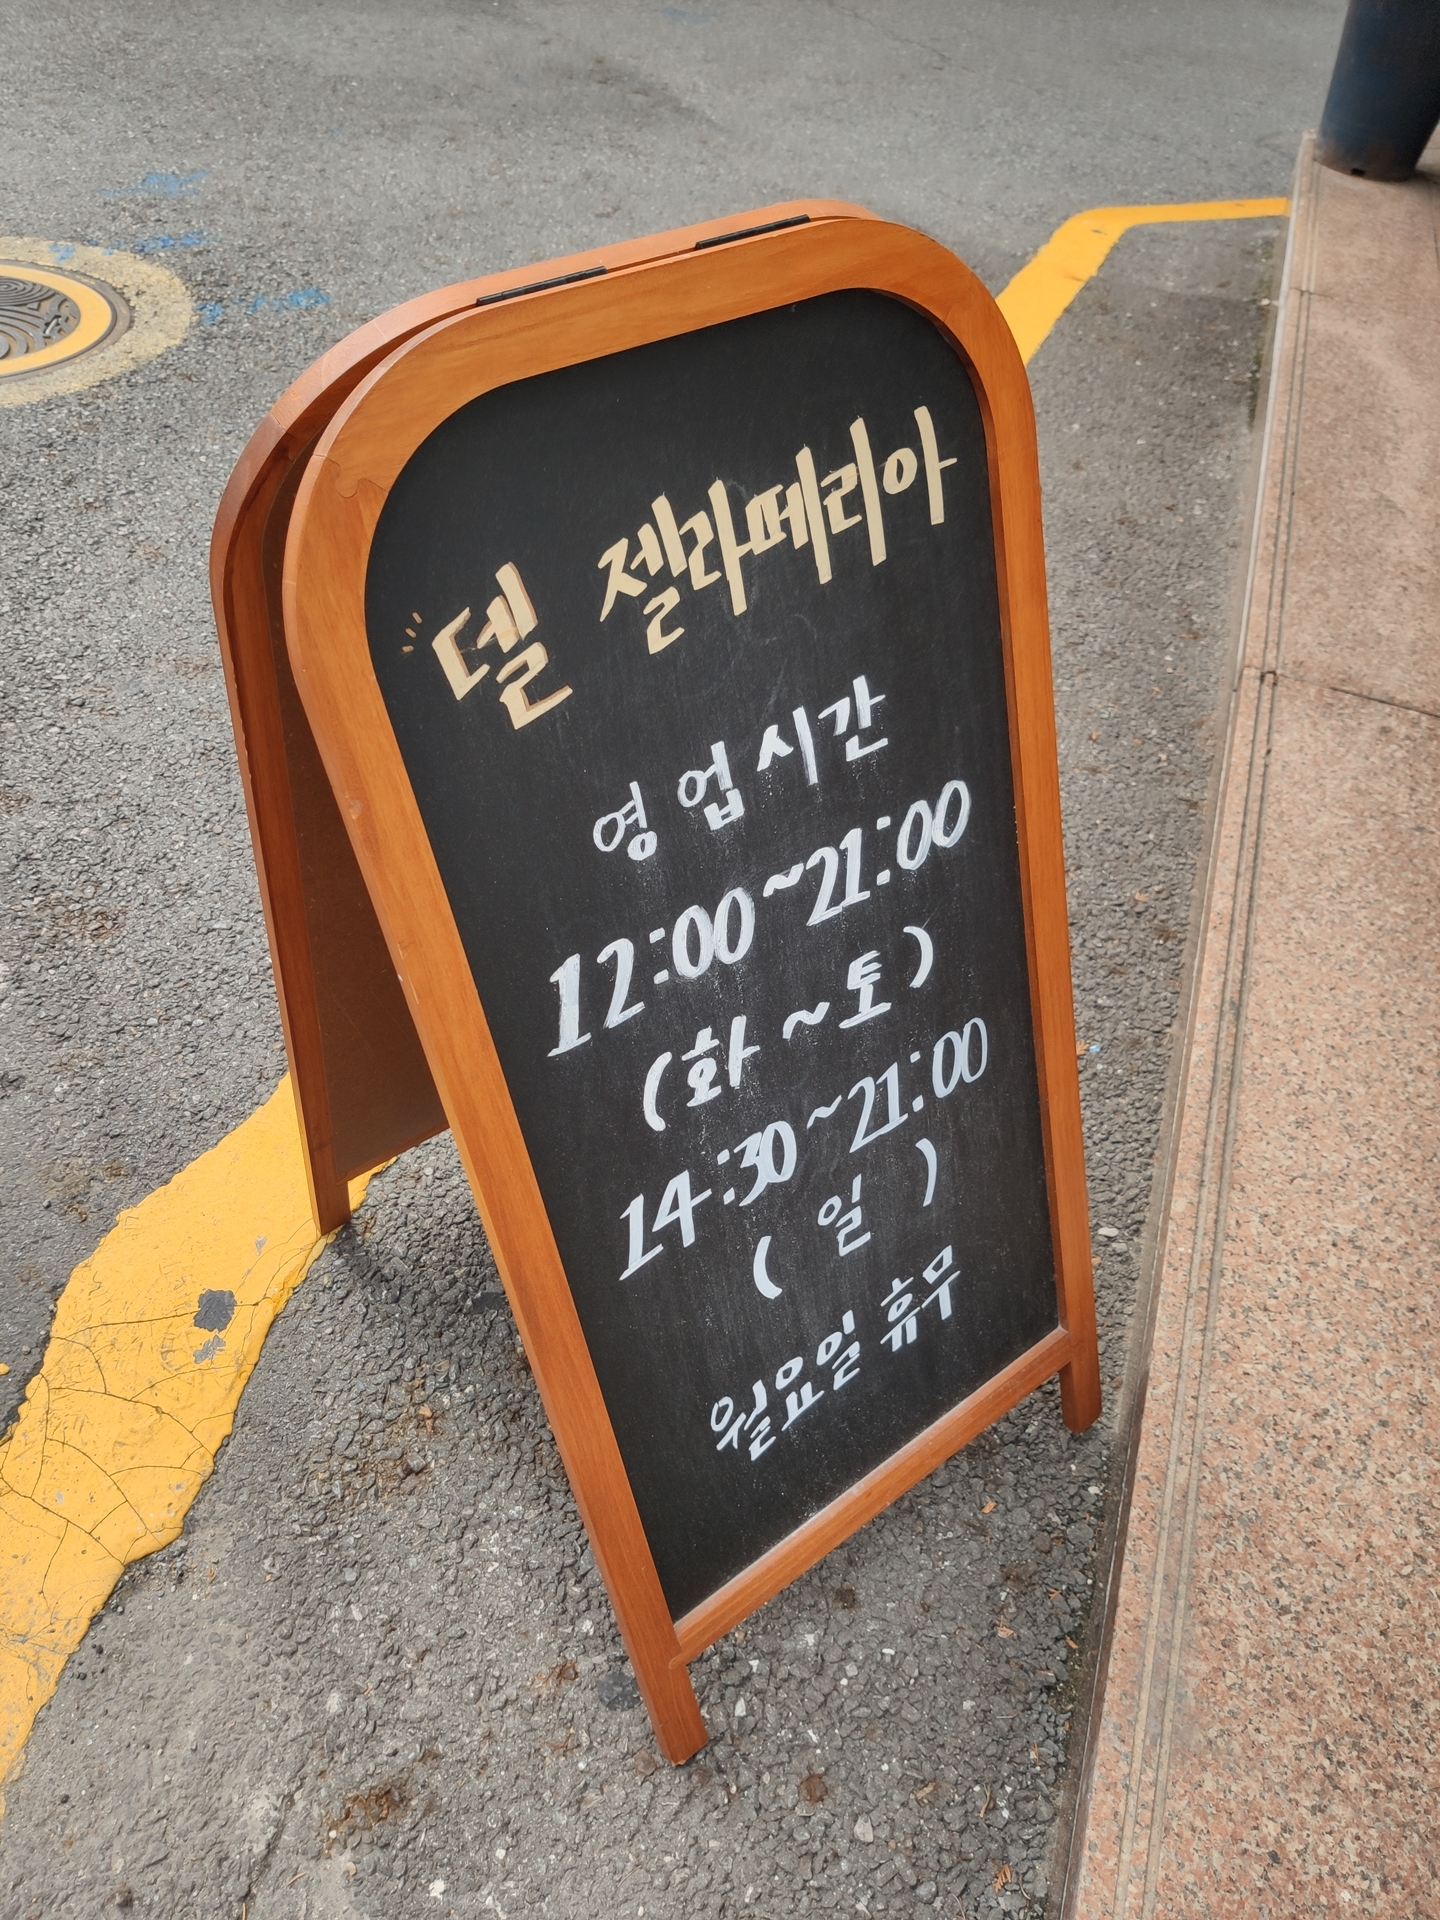 델 젤라떼리아
영업시간
12:00~21:00
(화~토)
14:30~21:00
( 일 )
월요일 휴무